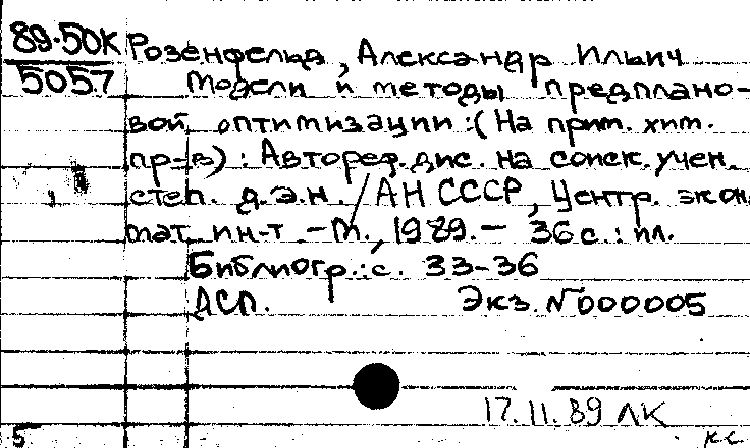 89-50К
5057
Розенфельд, Александр Ильич
Модели и методы предплано-
вой оптимизации: (На прим. хим.
пр-в) : Автореф. дис. на соиск. учен.
степ. д.э.н. / АН СССР, Центр. экон.
мат. ин-т. - М., 1989. - 36 с. : ил.
Библиогр.: с. 33-36
АСП. Экз. № 000005
17.11.89 ЛК
5 КС